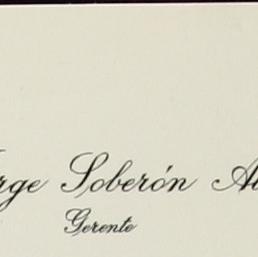 rge Soberón A
Gerente